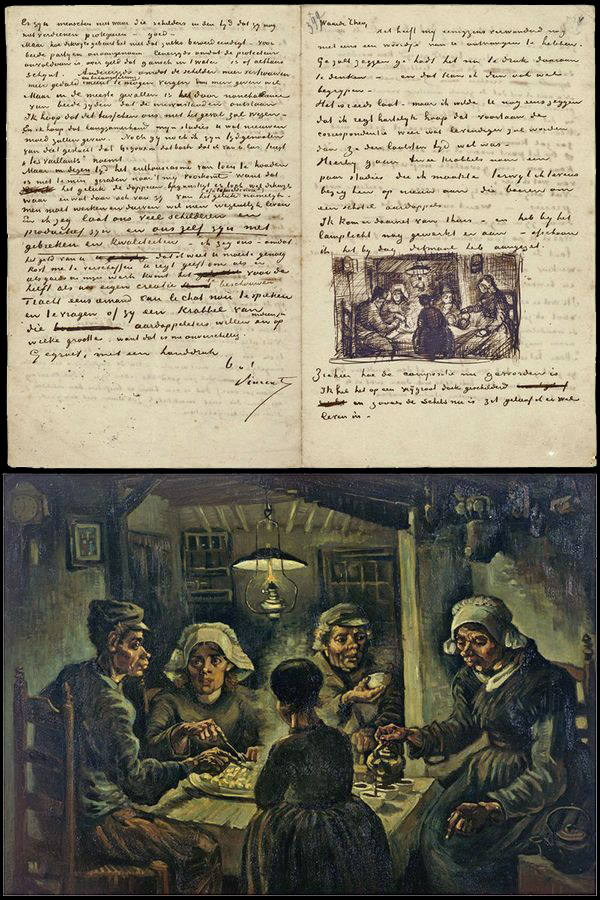 Er zyn menschen met die schilders in den tyd dat zy nog
niet verdienen protegeeren – goed –
Maar hoe dikwyls gebeurt het niet dat zulks beroerd eindigt – voor
beide partyen onaangenaam Eenerzyds omdat de protecteur
ontevreden is over geld dat ganschen in 't water is of althans
schynt. Anderzyds omdat de schilder meer vertrouwen
meer geduld meer belangstelling te mogen vergen dan men geven wil
Maar in de meeste gevallen is het door nonchalance
van beide zyden dat de misverstanden ontstaan
Ik hoop dat dit tusschen ons niet het geval zal wezen –
En ik hoop dat langzamerhand myn studies U wat nieuwen
moed zullen geven. Noch gy noch ik zyn tydgenooten
van dat geslacht dat Gigoux in dat boek dat ik van U las, teregt
"les vaillants" noemt
Maar in dezen tyd het enthousiasme van toen te houden
is niettemin geraden naar 't my voorkomt want dat
het geluk de dikwyls
waar en wat daar ook van zy van het geluk
men moet werken en durven wil men wezenlyk leven
En ik zeg laat ons veel schilderen en
productief zyn en ons zelf zyn met
gebreken en kwaliteiten – ik zeg ons – omdat
het geld van U dat ik weet U moeite genoeg
kost me te verschaffen U 't regt geeft om als er iets
goeds in myn werk komt het voor de
helft als uw eigen creatie te beschouwen
Tracht eens iemand van le Chat noir te spreken
en te vragen of zy een krabbel van
die aardappeleters willen en zoo
welke grootte, want dat is me onverschillig.
Gegroet, met een handdruk
b. à t.
Vincent
Waarde Theo,
Het heeft my eenigzins verwonderd nog
niet eens een woordje van U ontvangen te hebben.
Ge zult zeggen ge hadt het nu te druk daaraan
te denken – en dat kan ik dan ook wel
begrypen –
Het is reeds laat – maar ik wilde U nog eens zeggen
dat ik regt hartelyk hoop dat voortaan de
correspondentie weer wat levendiger zal worden
dan ze den laatsten tyd wel was –
Hierby gaan twee krabbels naar een
paar studies die ik maakte terwyl ik tevens
bezig ben op nieuw aan die boeren om
een schotel aardappels.
Ik kom er daarnet van thuis – en heb by het
lamplicht nog gewerkt er aan – ofschoon
ik het by dag ditmaal heb aangezet.
Ziehier hoe de compositie nu geworden is
Ik heb het op een vry groot doek geschilderd
en zooals de schets nu is zit geloof ik er wel
leven in –